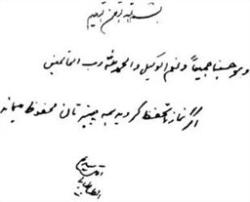 بسم الله الرحمن الرحیم
وهو حسبنا جمیعاً ونعم الوکیل والحمد لله رب العالمین
اگر نماز را تحفظ کردید همه چیزتان محفوظ میماند